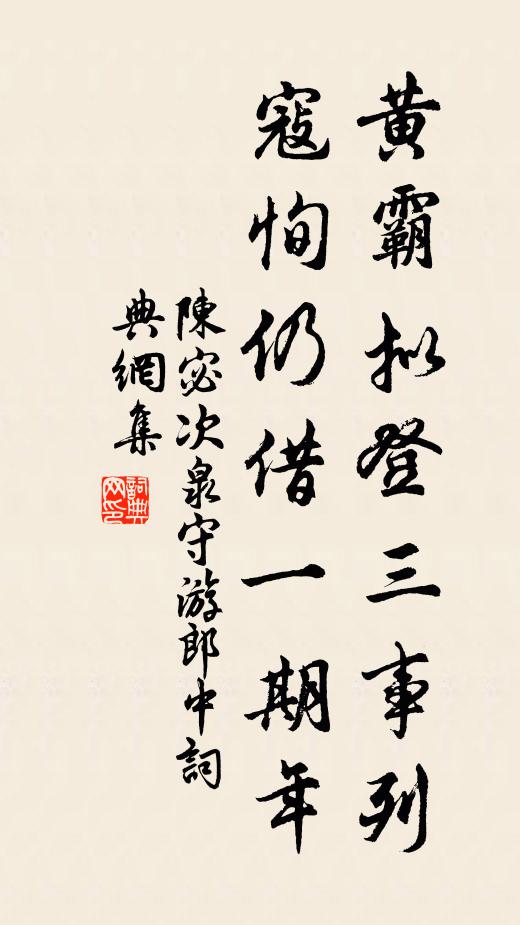 黄霸擬登三事列
寇恂仍借一期年
陳宓次泉守游郎中詞
典網集
詞典
网印